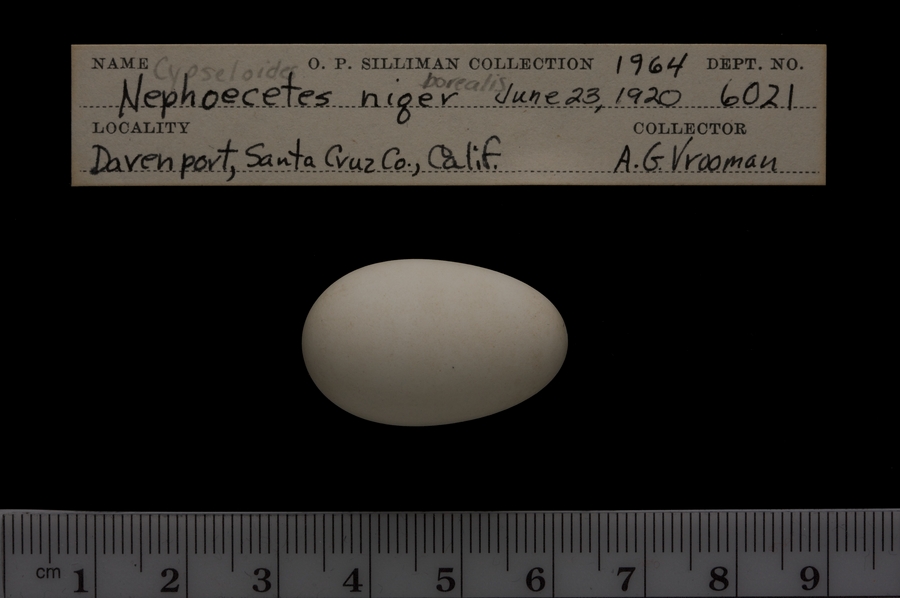 NAME Cypseloides O. P. SILLIMAN COLLECTION 1964 DEPT. NO.
Nephoecetes niger borealis June 23, 1920 6021
LOCALITY COLLECTOR
Davenport, Santa Cruz Co., Calif. A. G. Vrooman
cm 1 2 3 4 5 6 7 8 9